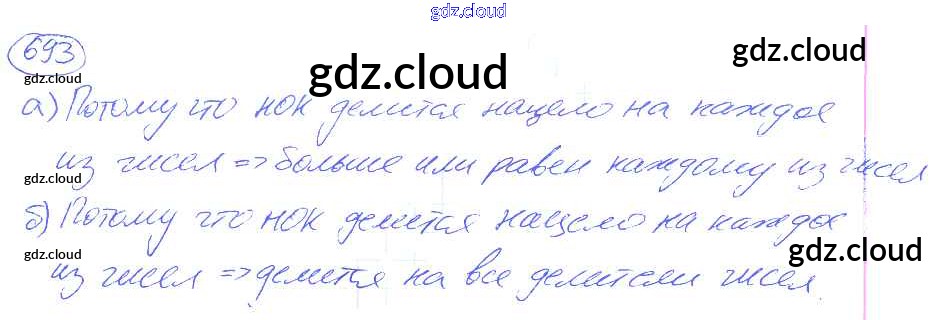 gdz.cloud
693
gdz.cloud gdz.cloud gdz.cloud
а) Потому что НОК делится нацело на каждое
gdz.cloud
из чисел => больше или равен каждому из чисел
gdz.cloud
б) Потому что НОК делится нацело на каждое
gdz.cloud gdz.cloud
из чисел => делится на все делители чисел.
gdz.cloud gdz.cloud